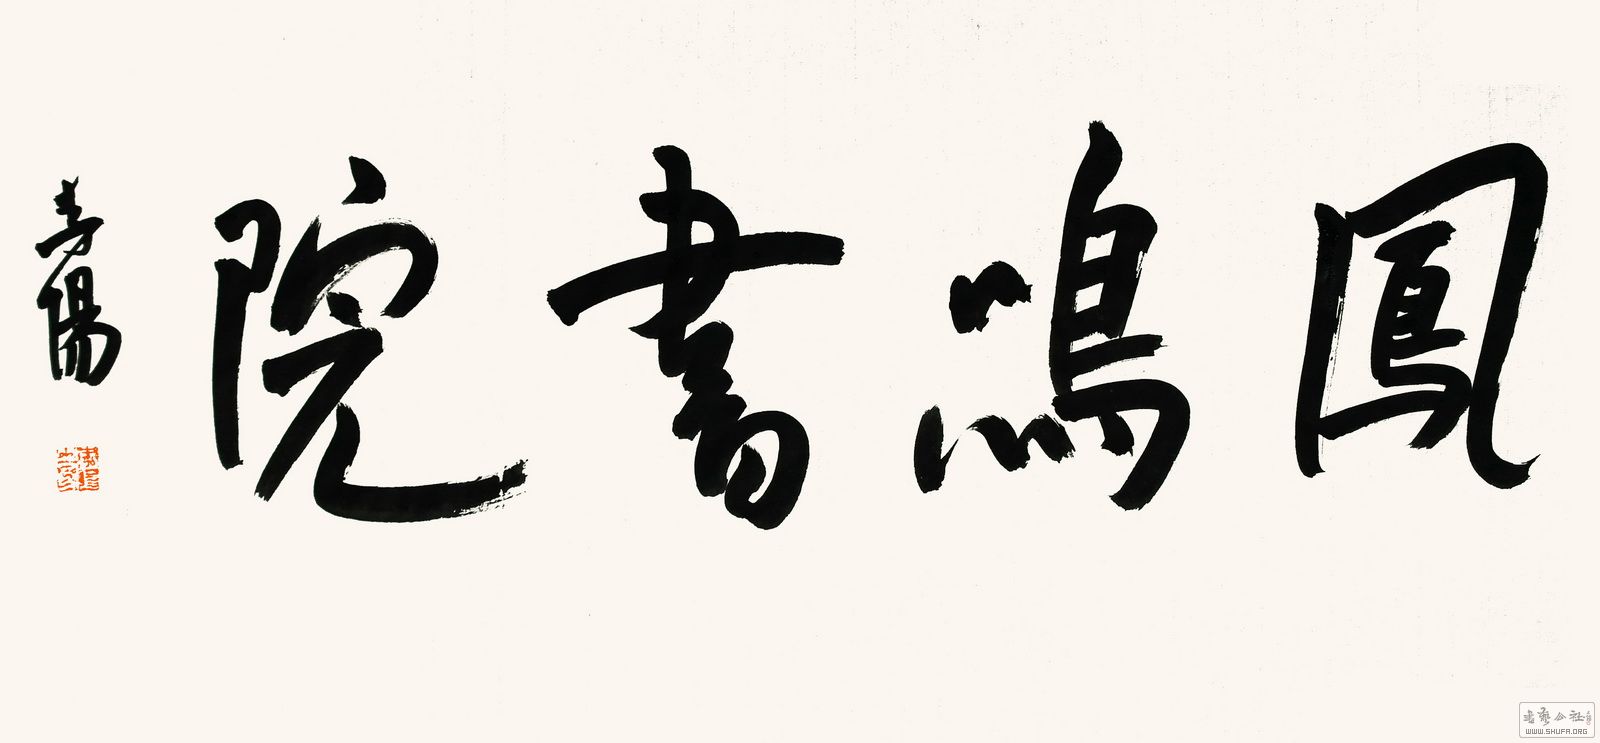 鳳鳴書院
書藝公社
WWW.SHUFA.ORG